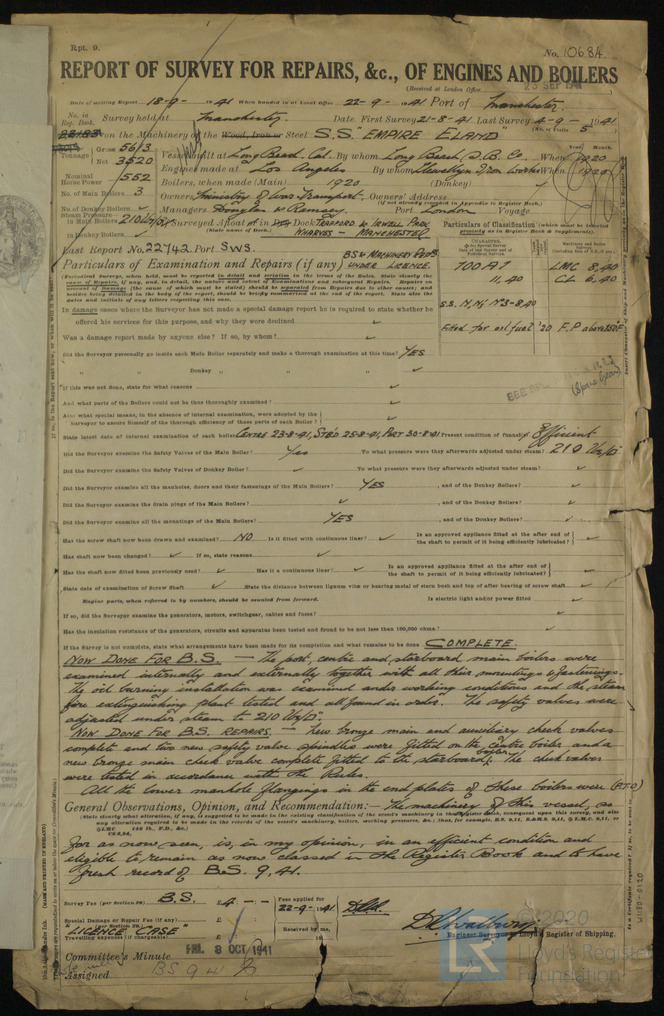 Rpt. 9.
No. 10684
REPORT OF SURVEY FOR REPAIRS, &c., OF ENGINES AND BOILERS
(Received at London Office
Date of writing Report 18-9- 1941 When handed in at Local Office 22-9-1941 Port of Manchester.
No. in Reg. Book. Survey held at Manchester. Date. First Survey 21-8-41 Last Survey 4-9-1941
(No. of Visits 5)
on the Machinery of the Wood, Iron or Steel S.S. "EMPIRE ELAND"
Tonnage Gross 5613 Net 3520
Vessel built at Long Beach, Cal. By whom Long Beach S.B. Co. When 1920
Nominal Horse Power 552
Engines made at Los Angeles By whom Llewellyn Iron Works When 1920
No. of Main Boilers 3
Boilers, when made (Main) 1920 (Donkey)
No. of Donkey Boilers
Owners Ministry of War Transport. Owners' Address
(if not already recorded in Appendix to Register Book.)
Steam Pressure in Main Boilers 210 lbs/□"
in Donkey Boilers
Managers Douglas & Ramsey Port London Voyage
Surveyed Afloat or in Dry Dock TRAFFORD & IRWELL PARK WHARVES - MANCHESTER
(State name of Dock.)
Particulars of Classification (which must be selected precisely as in Register Book & supplement).
Last Report No. 22742 Port SWS.
Particulars of Examination and Repairs (if any) BS & MACHINERY REPRS. UNDER LICENCE.
100 A1 LMC 8,40
11,40 CL 6,40
S.S. N,N, No3-8,40
Fitted for oil fuel '20 F.P. above 150°F
In damage cases where the Surveyor has not made a special damage report he is required to state whether he
offered his services for this purpose, and why they were declined
Was a damage report made by anyone else? If so, by whom?
Did the Surveyor personally go inside each Main Boiler separately and make a thorough examination at this time? YES
" " Donkey " "
If this was not done, state for what reasons
And what parts of the Boilers could not be thus thoroughly examined?
Also what special means, in the absence of internal examination, were adopted by the
Surveyor to assure himself of the thorough efficiency of those parts of each Boiler?
State latest date of internal examination of each boiler CENTRE 23-8-41, STBD 25-8-41, PORT 30-8-41 Present condition of funnel(s) Efficient
Did the Surveyor examine the Safety Valves of the Main Boiler? Yes To what pressure were they afterwards adjusted under steam? 210 lbs/□"
Did the Surveyor examine the Safety Valves of Donkey Boiler? To what pressure were they afterwards adjusted under steam?
Did the Surveyor examine all the manholes, doors and their fastenings of the Main Boilers? YES , and of the Donkey Boilers?
Did the Surveyor examine the drain plugs of the Main Boilers? , and of the Donkey Boilers?
Did the Surveyor examine all the mountings of the Main Boilers? YES , and of the Donkey Boilers?
Has the screw shaft now been drawn and examined? NO Is it fitted with continuous liner? Is an approved appliance fitted at the after end of the shaft to permit of it being efficiently lubricated?
Has shaft now been changed? If so, state reasons
Has the shaft now fitted been previously used? Has it a continuous liner? Is an approved appliance fitted at the after end of the shaft to permit of it being efficiently lubricated?
State date of examination of Screw Shaft State the distance between lignum vitæ or bearing metal of stern bush and top of after bearing of screw shaft
Engine parts, when referred to by numbers, should be counted from forward. Is electric light and/or power fitted
If so, did the Surveyor examine the generators, motors, switchgear, cables and fuses?
Has the insulation resistance of the generators, circuits and apparatus been tested and found to be not less than 100,000 ohms?
If the Survey is not complete, state what arrangements have been made for its completion and what remains to be done COMPLETE.
NOW DONE FOR B.S. — The port, centre and starboard main boilers were
examined internally and externally together with all their mountings & fastenings.
The oil burning installation was examined under working conditions and the steam
fire extinguishing plant tested and all found in order. The safety valves were
adjusted under steam to 210 lbs/□".
NOW DONE FOR B.S. REPAIRS. — New bronze main and auxiliary check valves
complete and two new safety valve spindles were fitted on the centre boiler and a
new bronze main check valve complete fitted to the starboard boiler. The check valves
were tested in accordance with the Rules.
All the lower manhole flangings in the end plates of these boilers were (P.T.O)
General Observations, Opinion, and Recommendation:— The machinery of this vessel, so
far as now seen, is, in my opinion, in an efficient condition and
eligible to remain as now classed in the Register Book and to have
fresh record of B.S. 9,41.
Survey Fee (per Section 29) B.S. £4 - - Fees applied for 22-9-1941
Special Damage or Repair Fee (if any) (per Section 29.) £ Received by me,
"LICENCE CASE"
Travelling Expenses (if chargeable) £
Engineer Surveyor to Lloyd's Register of Shipping.
Committee's Minute FRI. 3 OCT 1941
Assigned BS 9 41
© 2020
LR
Lloyd's Register
Foundation